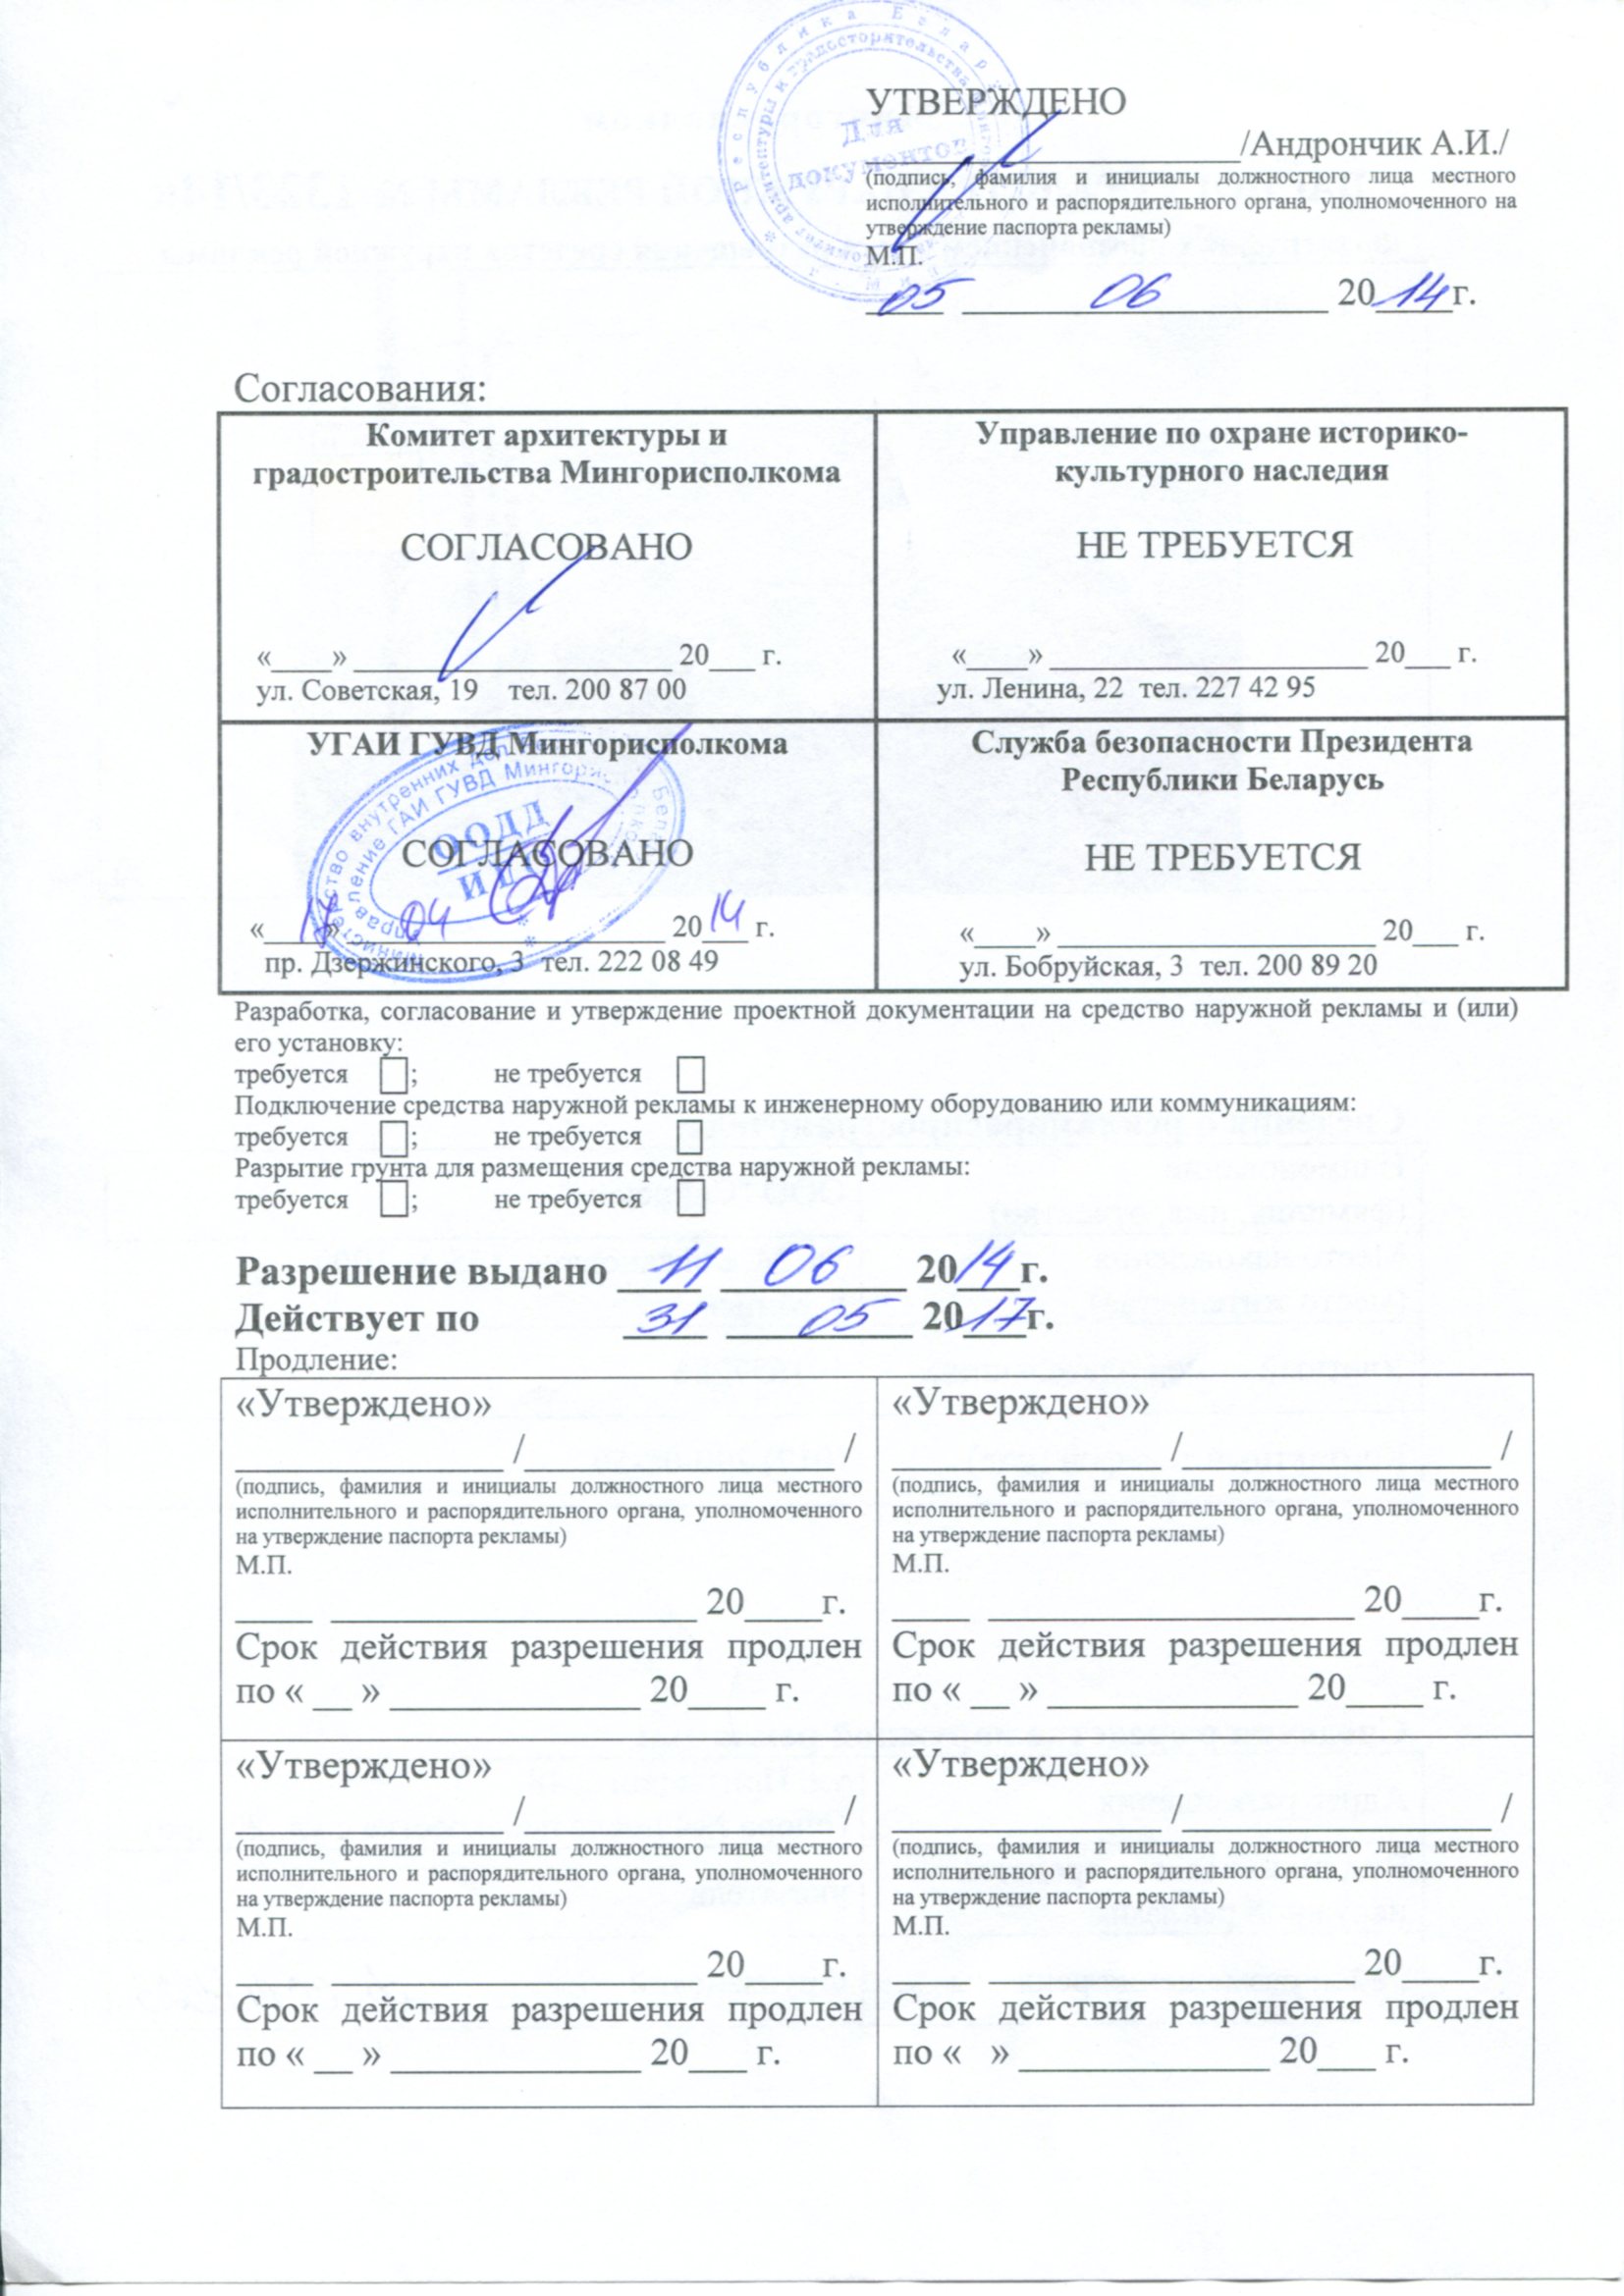 УТВЕРЖДЕНО
/Андрончик А.И./
(подпись, фамилия и инициалы должностного лица местного
исполнительного и распорядительного органа, уполномоченного на
утверждение паспорта рекламы)
М.П.
05 06 2014г.
Для
документов
Согласования:
Комитет архитектуры и
градостроительства Мингорисполкома
СОГЛАСОВАНО
«____» ____________________ 20___ г.
ул. Советская, 19 тел. 200 87 00
Управление по охране историко-
культурного наследия
НЕ ТРЕБУЕТСЯ
«____» ____________________ 20___ г.
ул. Ленина, 22 тел. 227 42 95
УГАИ ГУВД Мингорисполкома
СОГЛАСОВАНО
ООДД
«17» 04 2014 г.
пр. Дзержинского, 3 тел. 222 08 49
Служба безопасности Президента
Республики Беларусь
НЕ ТРЕБУЕТСЯ
«____» ____________________ 20___ г.
ул. Бобруйская, 3 тел. 200 89 20
Разработка, согласование и утверждение проектной документации на средство наружной рекламы и (или)
его установку:
требуется ; не требуется
Подключение средства наружной рекламы к инженерному оборудованию или коммуникациям:
требуется ; не требуется
Разрытие грунта для размещения средства наружной рекламы:
требуется ; не требуется
Разрешение выдано 11 06 2014г.
Действует по 31 05 2017г.
Продление:
«Утверждено»
______________ /________________ /
(подпись, фамилия и инициалы должностного лица местного
исполнительного и распорядительного органа, уполномоченного
на утверждение паспорта рекламы)
М.П.
____ ___________________ 20____г.
Срок действия разрешения продлен
по « __ » _____________ 20____ г.
«Утверждено»
______________ /________________ /
(подпись, фамилия и инициалы должностного лица местного
исполнительного и распорядительного органа, уполномоченного
на утверждение паспорта рекламы)
М.П.
____ ___________________ 20____г.
Срок действия разрешения продлен
по « __ » _____________ 20____ г.
«Утверждено»
______________ /________________ /
(подпись, фамилия и инициалы должностного лица местного
исполнительного и распорядительного органа, уполномоченного
на утверждение паспорта рекламы)
М.П.
____ ___________________ 20____г.
Срок действия разрешения продлен
по « __ » _____________ 20___ г.
«Утверждено»
______________ /________________ /
(подпись, фамилия и инициалы должностного лица местного
исполнительного и распорядительного органа, уполномоченного
на утверждение паспорта рекламы)
М.П.
____ ___________________ 20____г.
Срок действия разрешения продлен
по « » _____________ 20___ г.